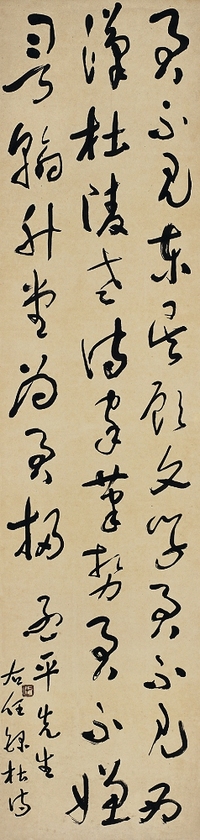 君不見東吳顧文學君不見西
漢杜陵老詩家筆勢君不嫌
詞翰升堂為君掃
平先生
右任錄杜詩